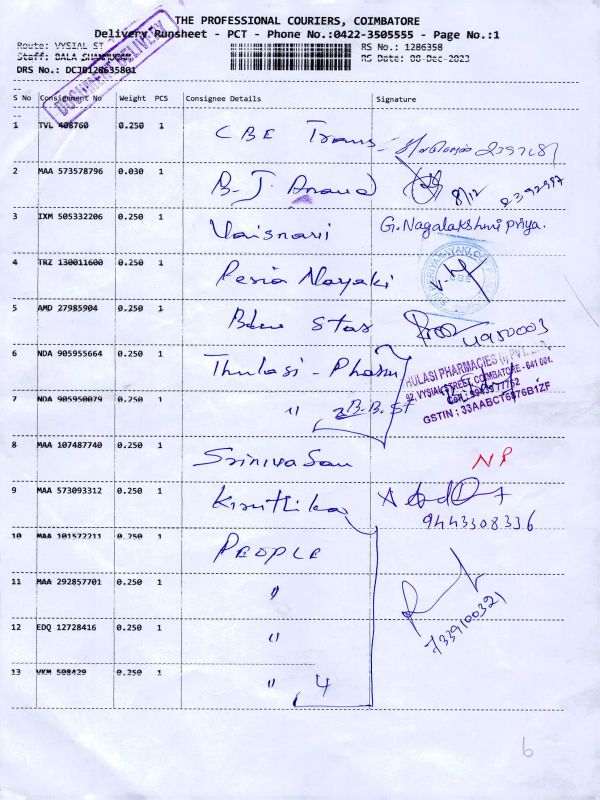 THE PROFESSIONAL COURIERS, COIMBATORE
Delivery Runsheet - PCT - Phone No.:0422-3505555 - Page No.:1
Route: VYSIAL ST RS No.: 1286358
Staff: BALA SHANMUGAM RS Date: 08-Dec-2023
DRS No.: DCJB128635801
DOCUMENT DELIVERY
S No Consignment No Weight PCS Consignee Details Signature
1 TVL 408760 0.250 1 CBE Trans
2 MAA 573578796 0.030 1 B. J. Anand 8/12
3 IXM 505332206 0.250 1 Vaisnavi G. Nagalakshmi Priya.
4 TRZ 130011600 0.250 1 Peria Nayaki
5 AMD 27985904 0.250 1 Blue Star 4950003
6 NDA 905955664 0.250 1 Thulasi - Pharm
THULASI PHARMACIES
92, VYSIAL STREET, COIMBATORE - 641 001.
GSTIN : 33AABCT6376B1ZF
7 NDA 905950079 0.250 1 " 2 B.B. St
8 MAA 107487740 0.250 1 Srinivasan NP
9 MAA 573093312 0.250 1 Kiruthika 9443308336
10 MAA 101572211 0.250 1 PEOPLE
11 MAA 292857701 0.250 1 " 7339100321
12 EDQ 12728416 0.250 1 "
13 VKM 508429 0.250 1 " 4
6